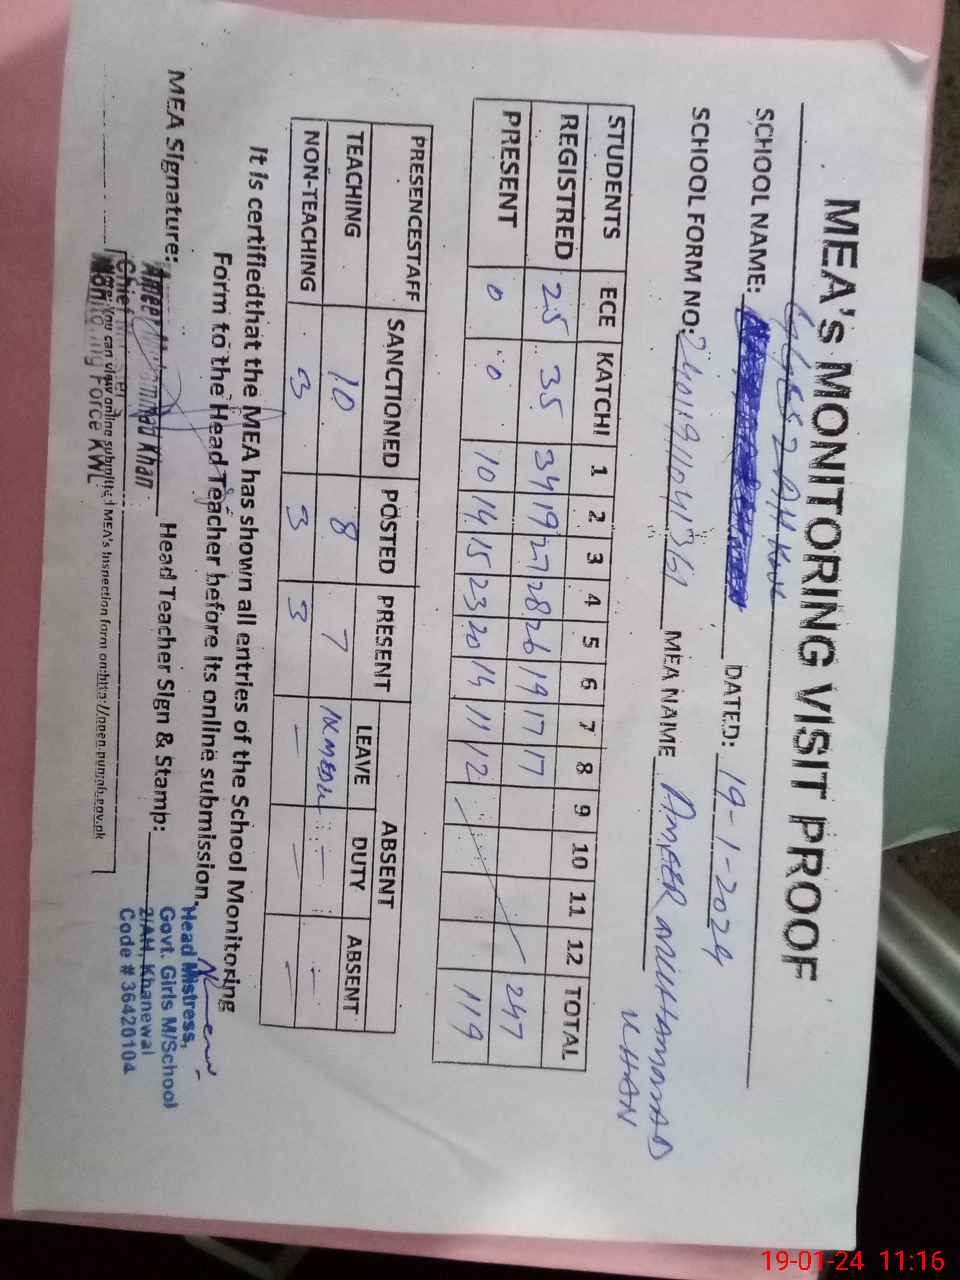 MEA's MONITORING VISIT PROOF
SCHOOL NAME: GGES 2 AH KWL DATED: 19-1-2024
SCHOOL FORM NO: MEA NAME AMEER MUHAMMAD KHAN
STUDENTS ECE KATCHI 1 2 3 4 5 6 7 8 9 10 11 12 TOTAL
REGISTRED 25 35 34 19 27 28 26 19 17 17 247
PRESENT 0 0 10 14 15 23 20 14 11 12 119
PRESENCESTAFF SANCTIONED POSTED PRESENT ABSENT
LEAVE DUTY ABSENT
TEACHING 10 8 7 - -
NON-TEACHING 3 3 3 - - -
It is certifiedthat the MEA has shown all entries of the School Monitoring
Form to the Head Teacher before its online submission.
MEA Signature: Head Teacher Sign & Stamp:
Ameer Muhammad Khan
Monitoring Force KWL
Head Mistress,
Govt. Girls M/School
2/AH, Khanewal
Code # 36420104
You can view online submitted MEA's Inspection form on:http://open.punjab.gov.pk
19-01-24 11:16